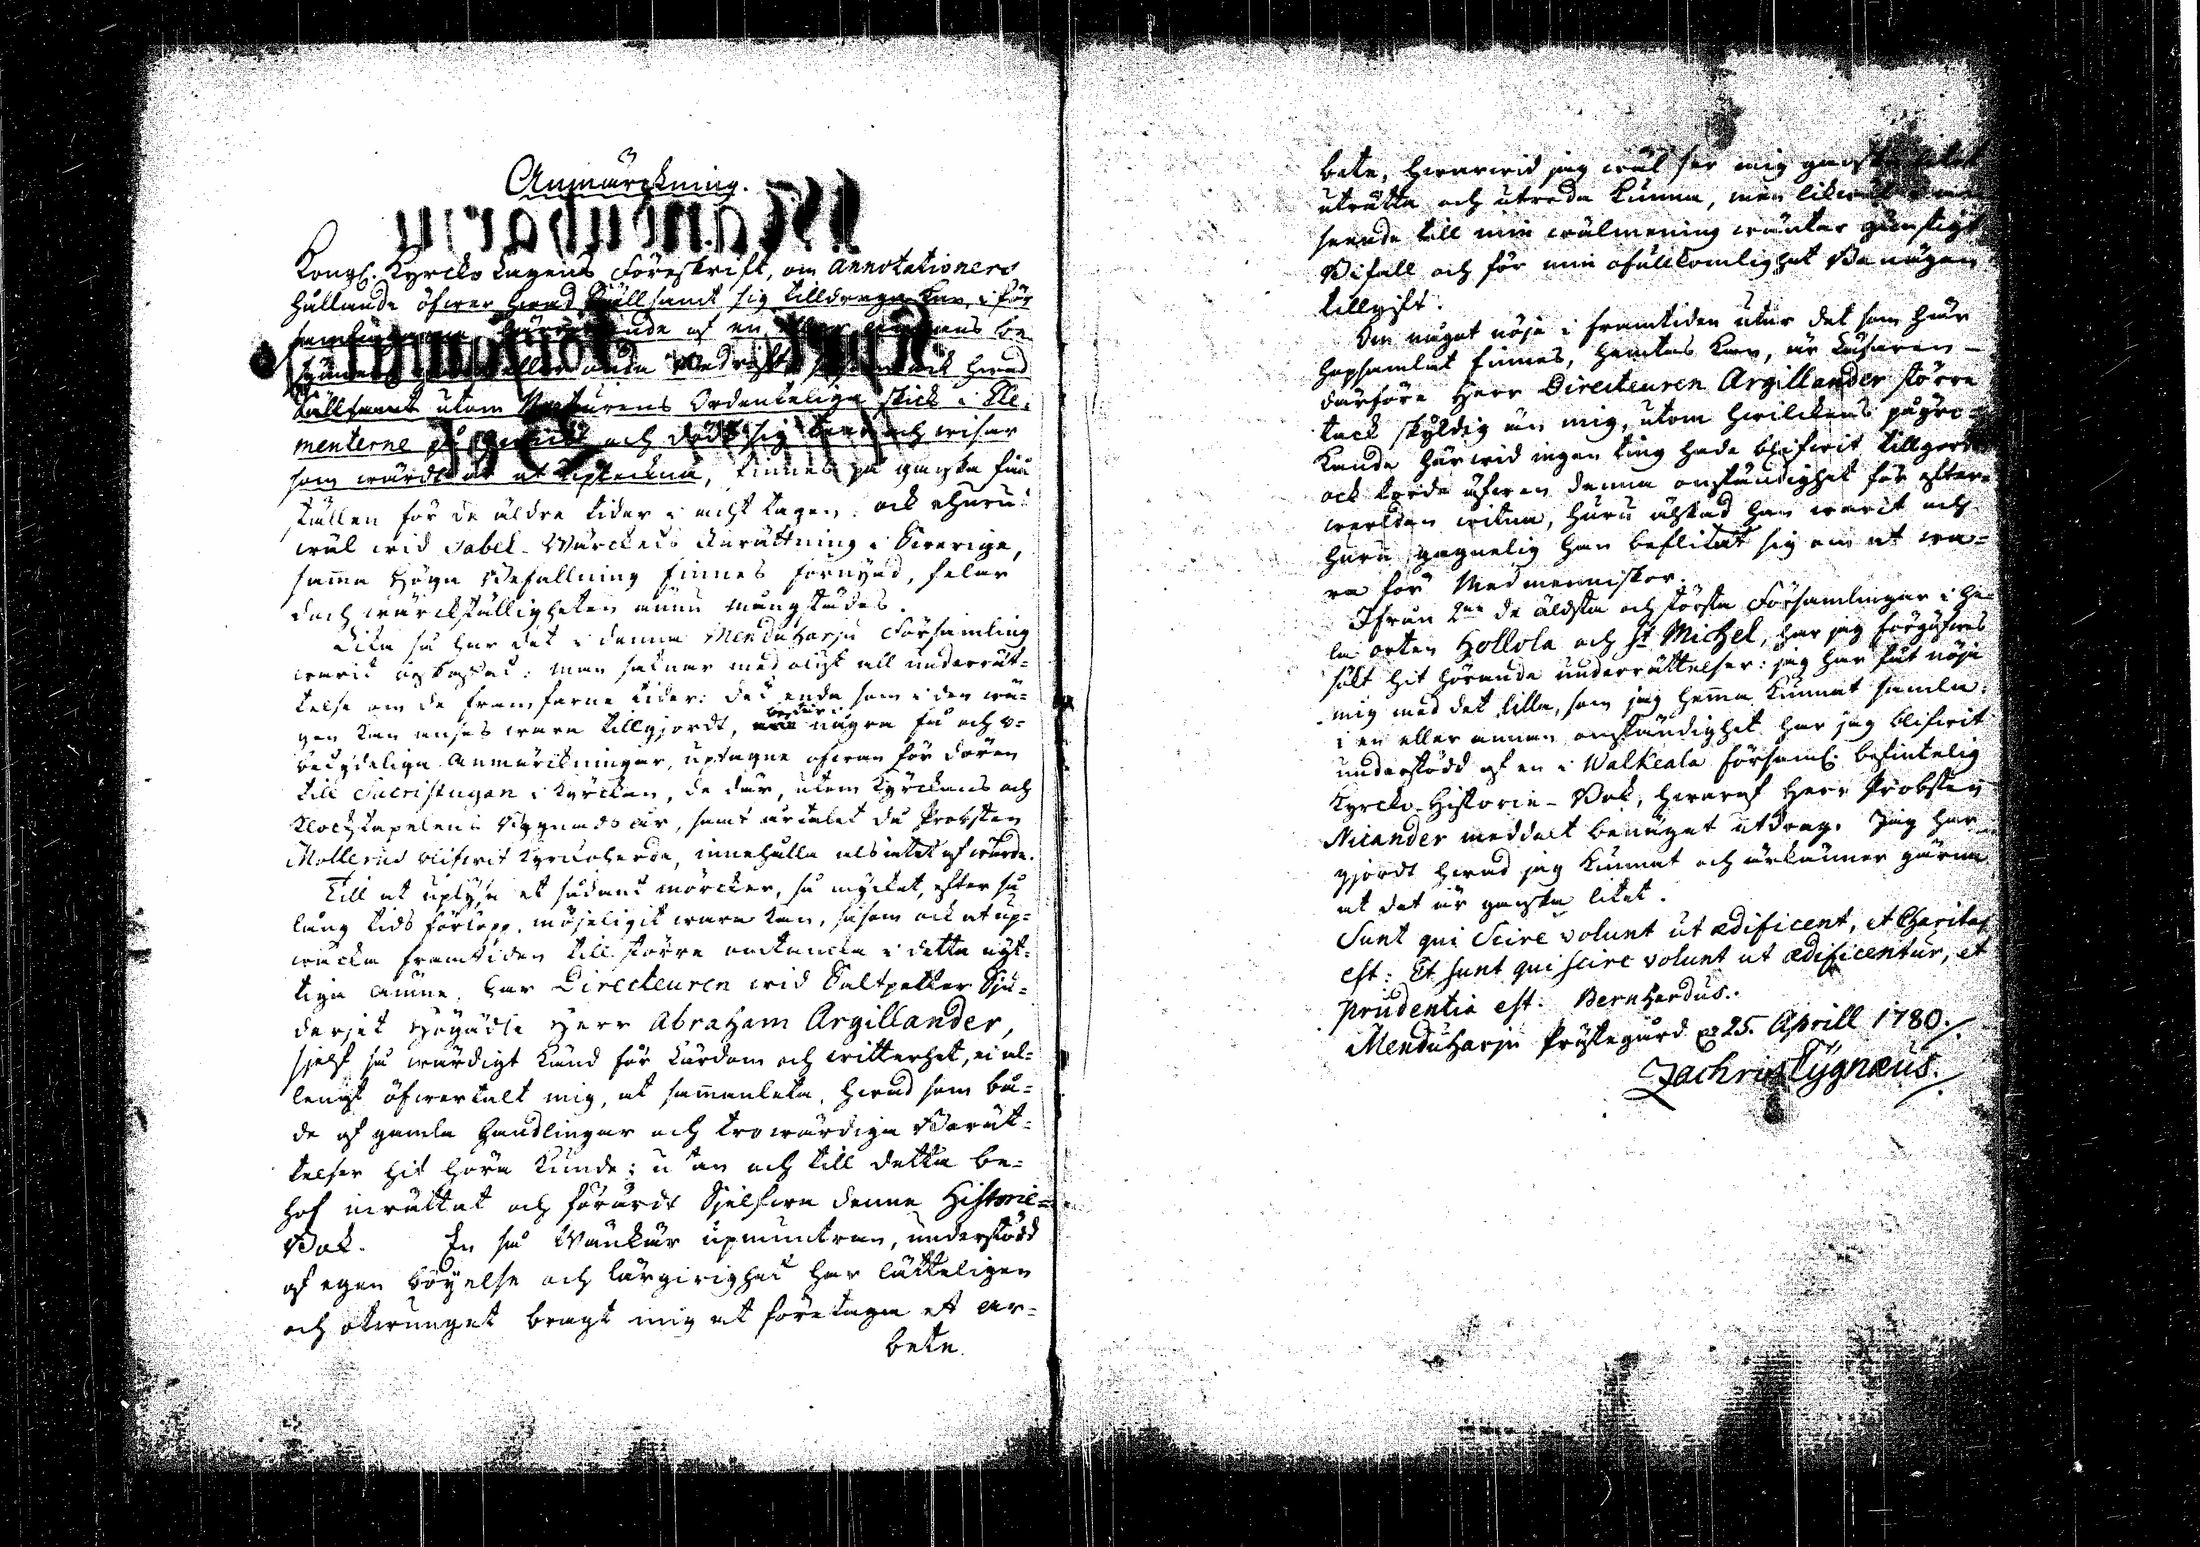 Anmärckning.
Kongl. Kyrcko Lagens Föreskrift, om Annotationers
hållande öfwer hwad sällsamt sig tilldraga kan i för
samlingarne af en be
eller onda hwad
sällsamt utom Naturens Ordenteliga skick i Ele-
menterne på och sig och wisar
som wärdt är at upteckna, finnes på ganska få
ställen för de äldre tider i ackt tagen. ock ehuru-
wäl wid Tabel-Wärckets Inrättning i Swerige,
samma Höga Befallning finnes förnyad, felar
doch wärckställigheten ännu mångstädes.
Lika så har det i denna Mendüharju Församling
warit : man saknar med alt all underrät-
telse om de framfarne tider: det enda som i den wä-
gen kan anses wara tillgjordt, består i några få och o-
betydeliga Anmärckningar, uptagne ofwan för dören
till Sacristugan i Kyrckan, de där, utom Kyrckans och
Klockstapelens Bygnads år, samt årtalet då Probsten
Mollerus blifwit Kyrckoherde, innehålla alsintet af wärde.
Till at uplysa et sådant mörcker, så mycket, efter så
lång tids förlopp, möjeligit wara kan, såsom ock at up-
wäcka framtiden till större i detta nyt-
tiga ämne, har Directeuren wid Saltpetter Sju-
deriet Högädle Herr Abraham Argillander,
sjelf så wärdigt känd för Lärdom och witterhet, ei al-
lenast öfwertalt mig, at sammanleta, hwad som bå-
de af gamla Handlingar och trowärdiga Berät-
telser hit höra kunde; utan och till detta be-
hof inrättat och förärdt Sjelfwa denne Historie-
Bok. En så Wänkär upmuntran, understödd
af egen böyelse och lärgirighet har lätteligen
och otwunget bragt mig at företaga et ar-
bete
bete, hwarwid jag wäl ser mig ganska litet
uträtta och utreda kunna, men likwäl
seende till min wälmening wäntar gunstigt
Bifall och för min ofullkomlighet Benägen
tillgift.
Om något nöje i framtiden utur det som här
hopsamlat finnes, hemtas kan, är Läsaren
därföre Herr Directeuren Argillander större
tack skyldig än mig, utom hwilckens påyrc-
kande härwid ingen ting hade blifwit tillgordt
ock torde äfwen denna omständighet för efter-
werlden witna, huru älskad han warit och
huru gagnelig han beflitat sig om at wa-
ra för Medmenniskor.
Ifrån 2ne de äldsta och största Församlingar i he-
la orten Hollola och St Michel, har jag förgäfwes
sökt hit hörande underrättelser: jag har fåt nöja
mig med det lilla, som jag hema kunnat samla:
i en eller annan omständighet har jag blifwit
understödd af en i Walkeala församl. befintelig
Kyrcko-Historie-Bok, hwaraf Herr Probsten
Nicander meddelt benäget utdrag. Jag har
gjordt hwad jag kunnat och ärkänner gärna
at det är ganska litet.
Sunt qui Scire volunt ut ædificent, et Charitas
est: Et sunt qui scire volunt ut ædificentur, et
prudentia est. Bernhardus.
Mendüharju Prästegård 25. Aprill 1780.
Zachris Cygnæus.